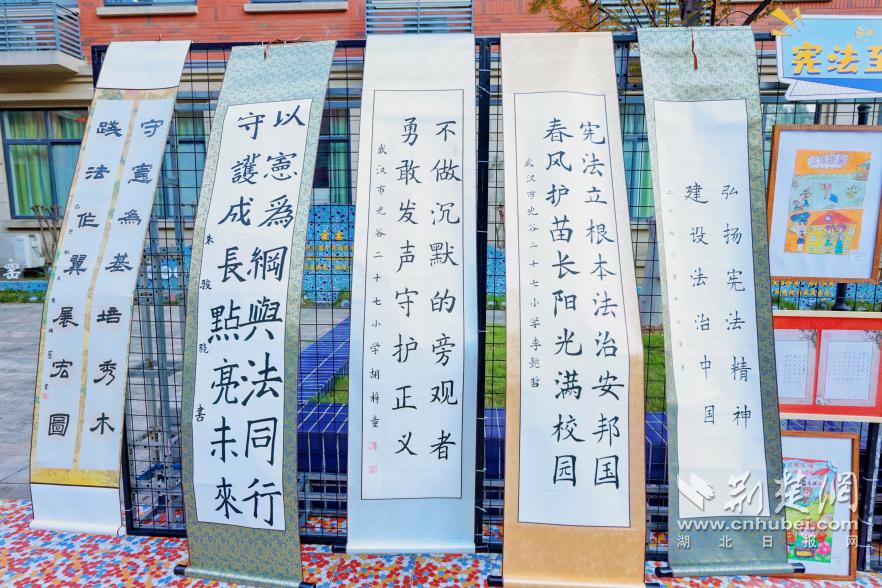 守憲為基培秀木
踐法作翼展宏圖
以憲爲綱與法同行
守護成長點亮未來
朱駿驍書
不做沉默的旁观者
勇敢发声守护正义
武汉市光谷二十七小学胡梓童
宪法立根本法治安邦国
春风护苗长阳光满校园
武汉市光谷二十七小学李懿哲
弘扬宪法精神
建设法治中国
宪法至
荆楚网
www.cnhubei.com
湖北日报网